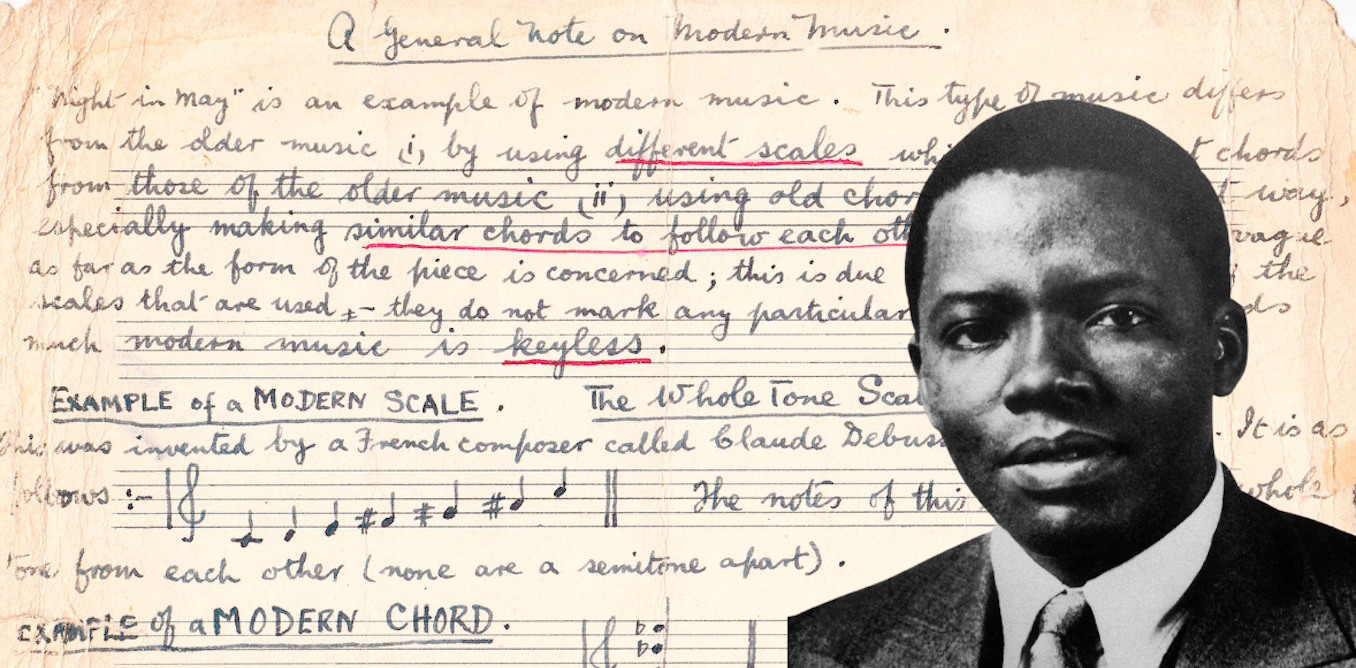 A General Note on Modern Music.
"Night in May" is an example of modern music. This type of music differs
from the older music (i) by using different scales whi t chords
from those of the older music (ii) using old chor t way,
especially making similar chords to follow each oth vague
as far as the form of the piece is concerned; this is due the
scales that are used :- they do not mark any particular ds
much modern music is keyless.
EXAMPLE of a MODERN SCALE. The Whole Tone Scal
This was invented by a French composer called Claude Debus . It is as
follows :- The notes of this whole
Tone from each other (none are a semitone apart).
EXAMPLE of a MODERN CHORD.